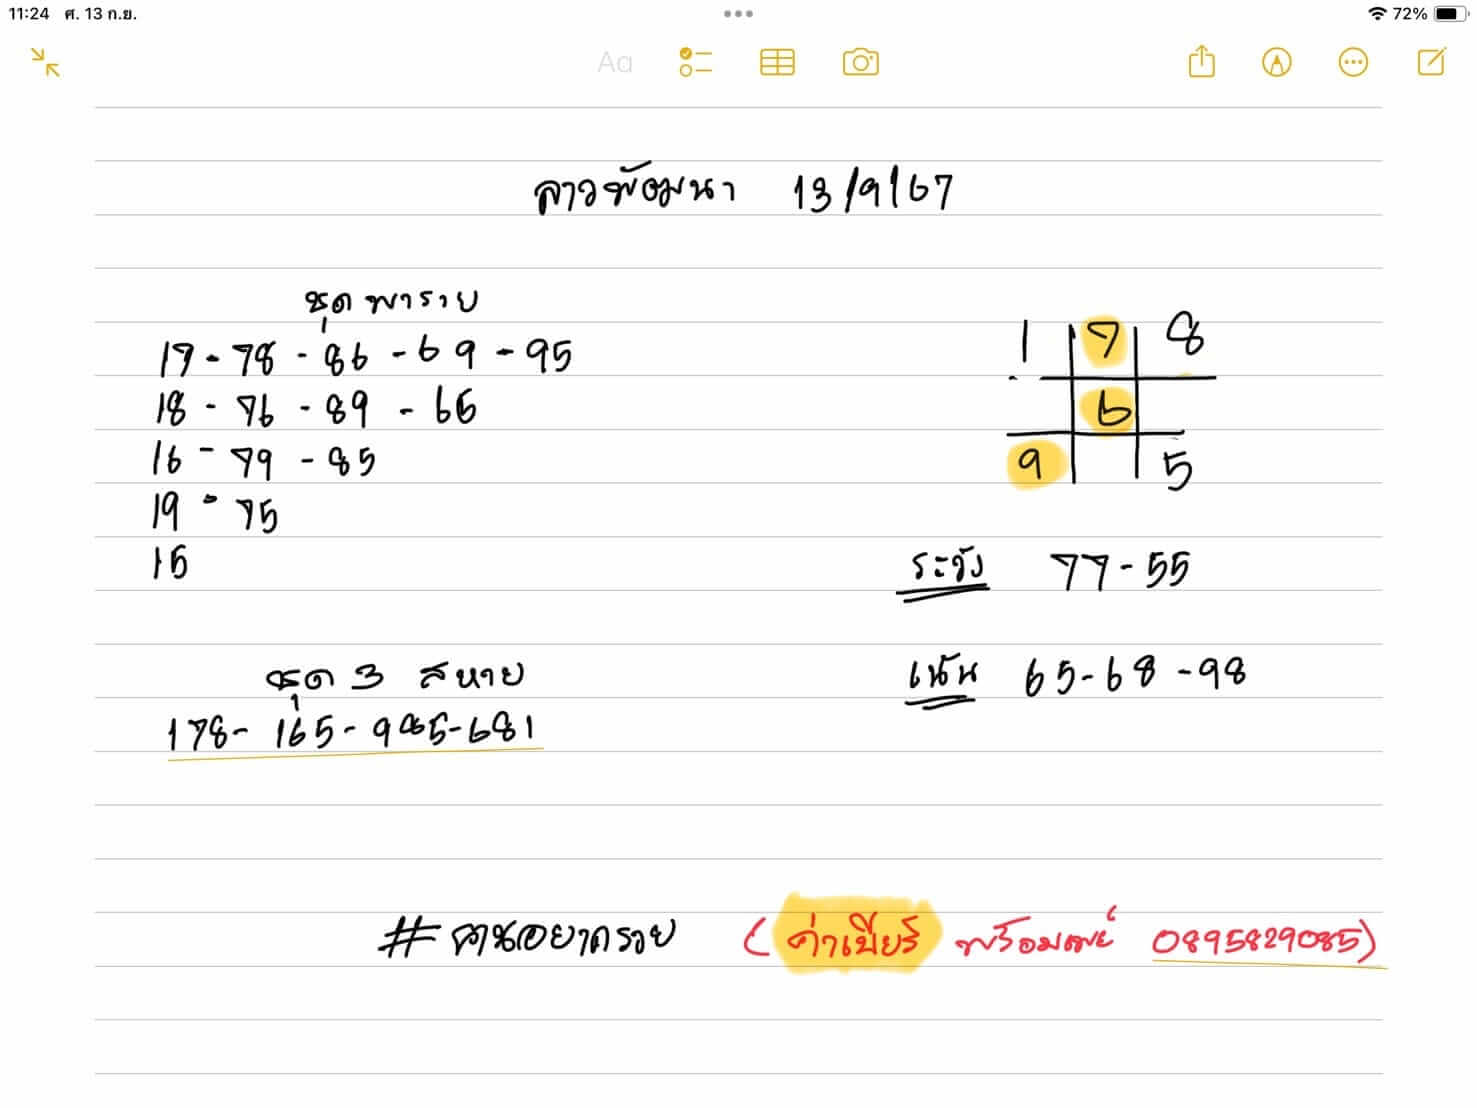 11:24 ศ. 13 ก.ย.
72%
Aa
ลาวพัฒนา 13/9/67
ชุดพารวย
17 - 78 - 86 - 69 - 95
18 - 76 - 89 - 65
16 - 79 - 85
19 - 75
15
1 7 8
6
9 5
ระวัง 77 - 55
เน้น 65 - 68 - 98
ชุด 3 สหาย
178 - 165 - 985 - 681
#คนอยากรวย (ค่าเบียร์ พร้อมเพย์ 0895829085)